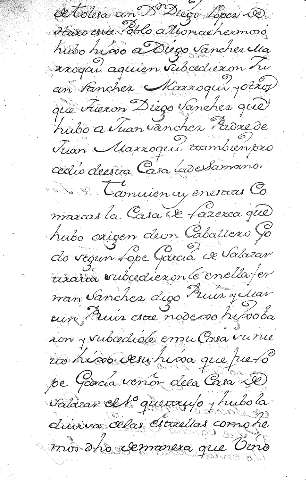 de Tolosa a un Dn Diego Lopez de
Haro este Poblo a Mona hermoso
hubo hixo a Diego Sanchez Ma
rroquin a quien subcedieron Ju
an Sanchez Marroqui y otros
que fueron Diego Sanchez que
hubo a Juan Sanchez Padre de
Juan Marroqui tambien pro
cedio de esta Casa la de Samano.
Tamuien ay en estas Co
marcas la Casa de Lazerca que
hubo origen de un Caballero Go
do segun Lope Garcia de Salazar
subcedieronle en ella fer
nan Sanchez digo Ruiz y Mar
tin Ruiz este no dexo hixo ba
ron y subcediole en su Casa su nie
to hixo de su hixa que fue Lo
pe Garcia señor de la Casa de
Salazar el 1o que traxo y hubo la
diuisa de las estrellas como he
mos dho de manera que vino